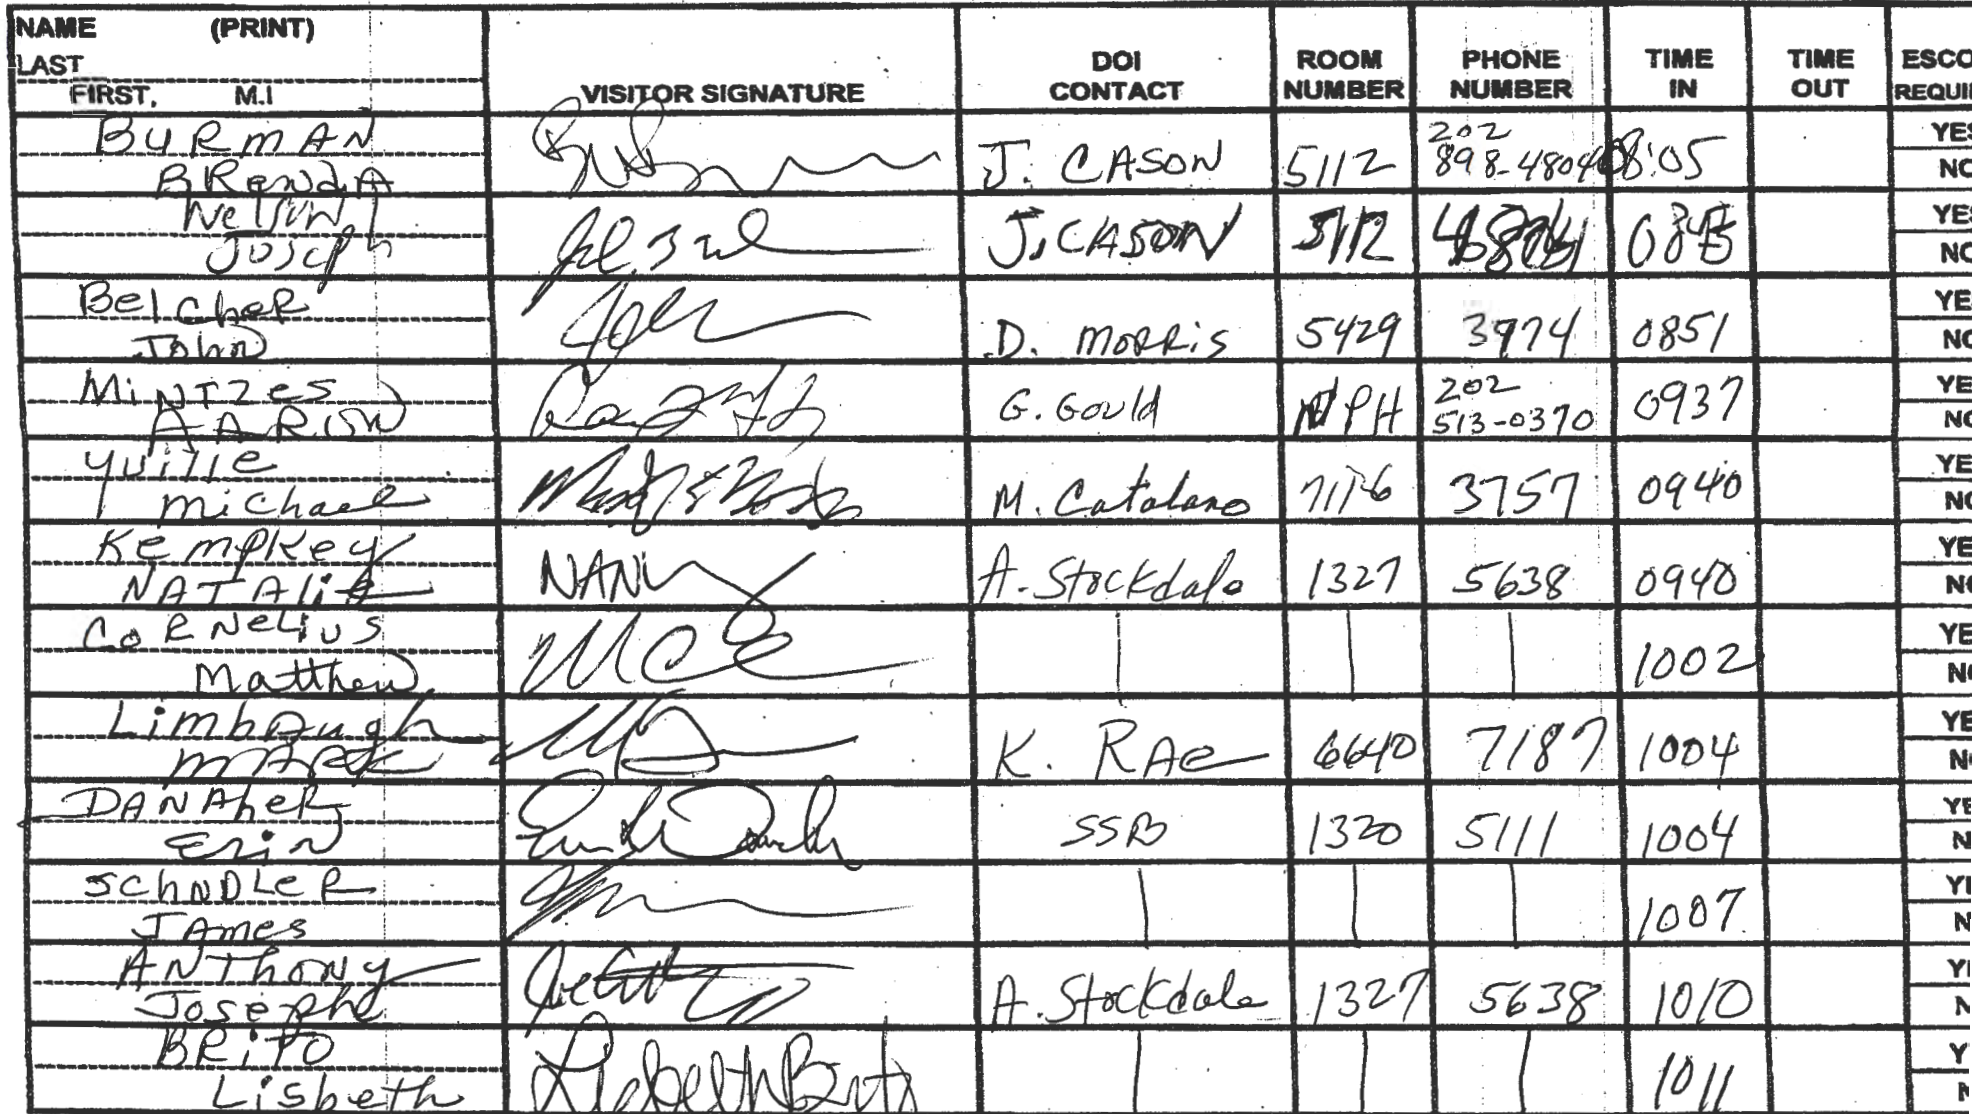 NAME (PRINT)
LAST
FIRST, M.I
VISITOR SIGNATURE
DOI CONTACT
ROOM NUMBER
PHONE NUMBER
TIME IN
TIME OUT
ESCO
REQUI
BURMAN
BRENDA
J. CASON 5112 202 898-4804 8:05
YES
NO
Nelson
Joseph
J. CASON 5112 0845
YES
NO
Belcher
John
D. MORRIS 5429 3974 0851
YE
NO
MINTZES
AARON
G. Gould PH 202 513-0370 0937
YE
NO
Yuille
Michael
M. Catalano 3757 0940
YE
NO
Kempkey
NATALIE
NAN
A. Stockdale 1327 5638 0940
YE
NO
CORNELIUS
Matthew
1002
YE
NO
Limbaugh
MARK
K. RAE 6640 7187 1004
YE
NO
DANAHER
ERIN
SSB 1320 5111 1004
YE
N
SCHNDLER
JAMES
1007
YE
N
ANTHONY
Joseph
A. Stockdale 1327 5638 1010
YE
N
BRITO
Lisbeth
Lisbeth Brito
1011
Y
N